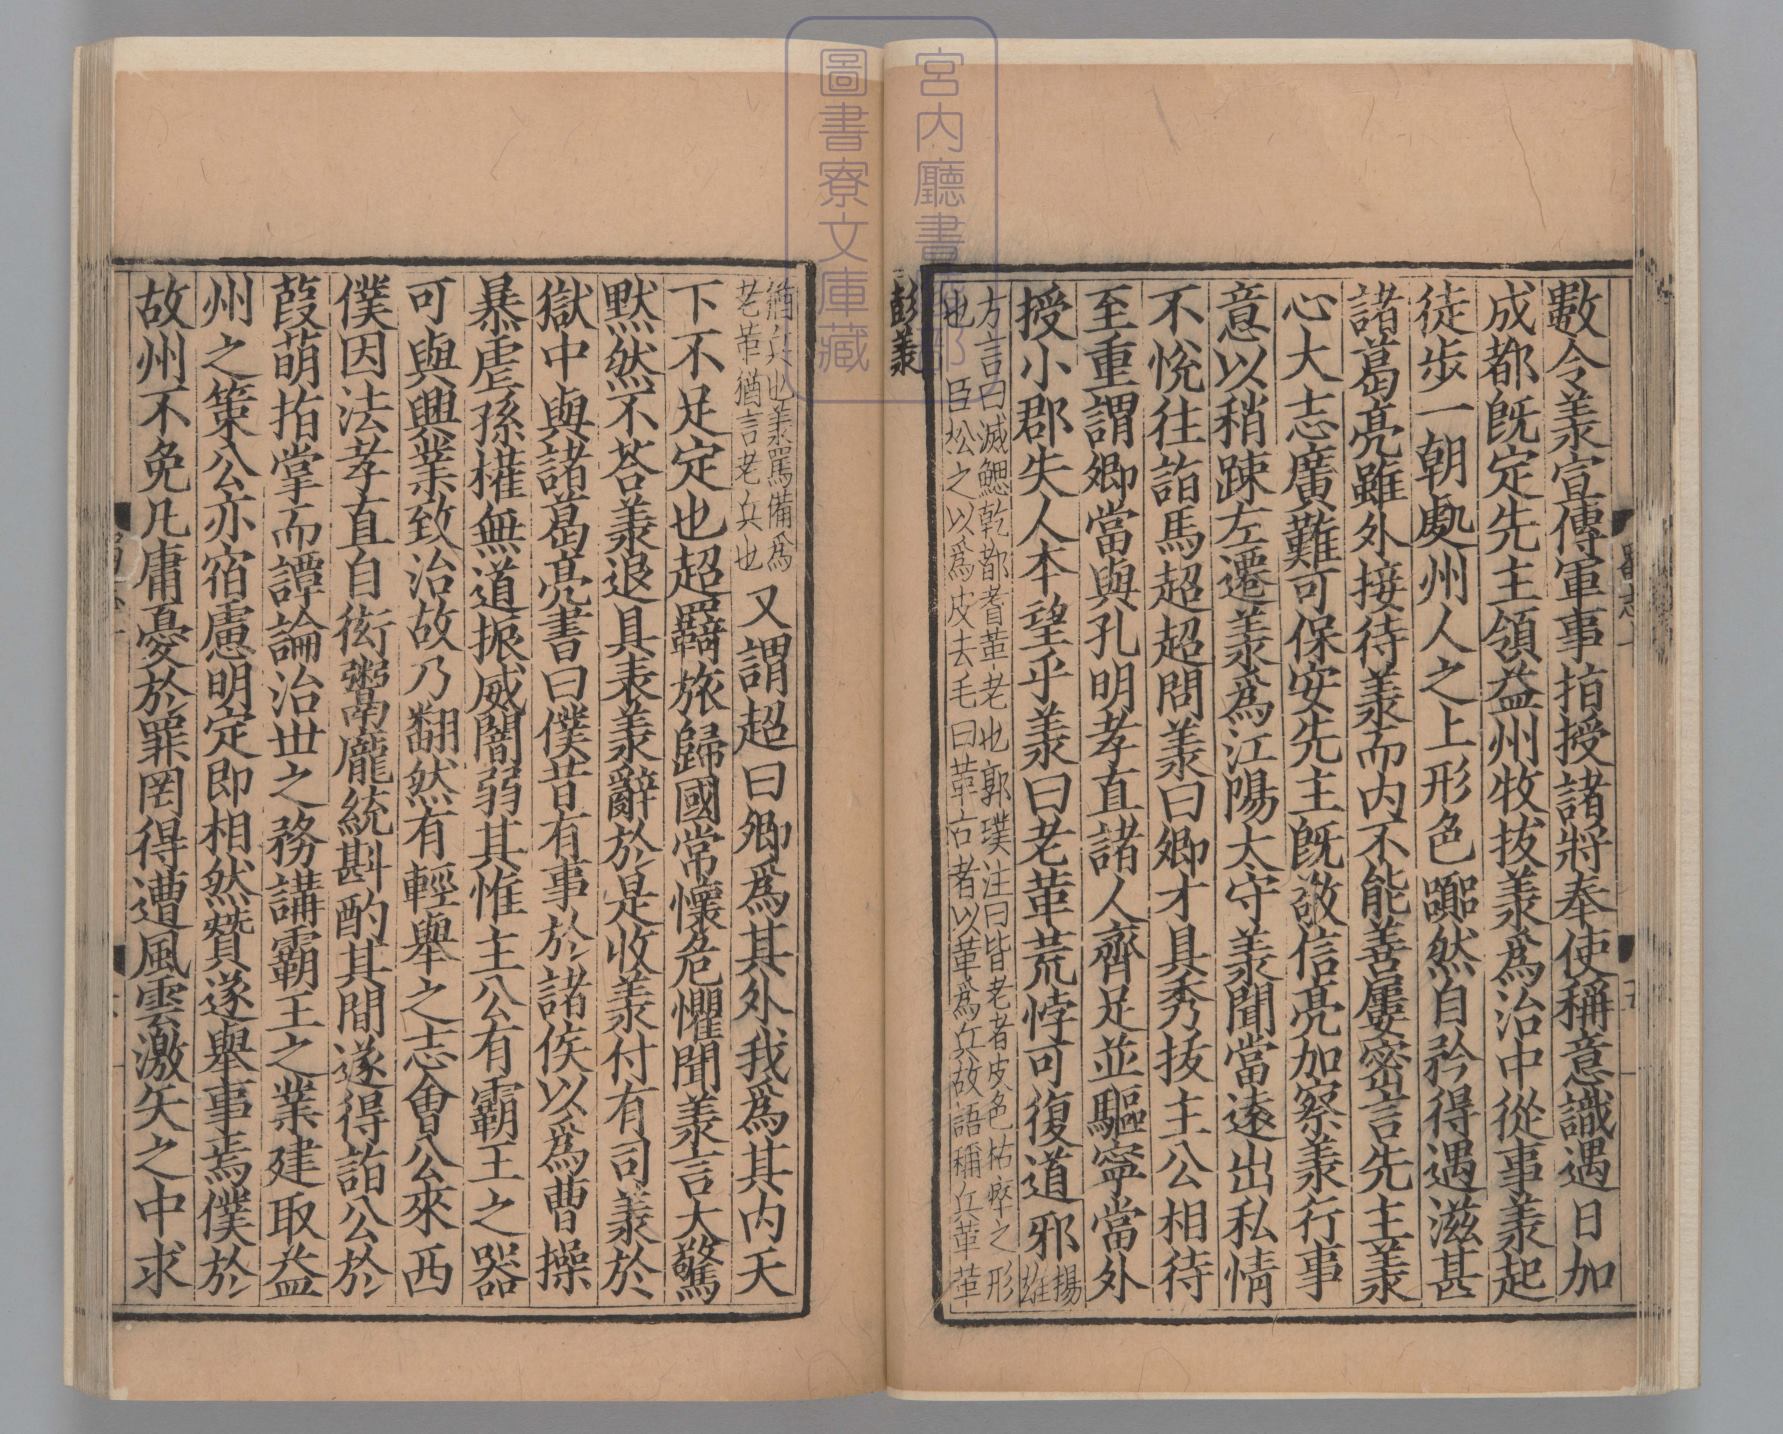 數令羕宣傳軍事指授諸將奉使稱意識遇日加
成都既定先主領益州牧拔羕爲治中從事羕起
徒步一朝處州人之上形色嚻然自矜得遇滋甚
諸葛亮雖外接待羕而内不能善屢密言先主羕
心大志廣難可保安先主既敬信亮加察羕行事
意以稍踈左遷羕爲江陽太守羕聞當遠出私情
不恱往詣馬超超問羕曰卿才具秀拔主公相待
至重謂卿當與孔明孝直諸人齊足並驅寧當外
授小郡失人本望乎羕曰老革荒悖可復道邪揚雄
方言曰滅鰓乾都耆革老也郭璞注曰皆老者皮色枯瘁之形
也臣松之以爲皮去毛曰革古者以革爲兵故語稱兵革革
彭羕
猶兵也羕罵備爲
老革猶言老兵也又謂超曰卿爲其外我爲其内天
下不足定也超羈旅歸國常懷危懼聞羕言大驚
默然不荅羕退具表羕辭於是收羕付有司羕於
獄中與諸葛亮書曰僕昔有事於諸侯以爲曹操
暴虐孫權無道振威闇弱其惟主公有霸王之器
可與興業致治故乃翻然有輕舉之志會公來西
僕因法孝直自衒鬻龐統斟酌其間遂得詣公於
葭萌指掌而譚論治世之務講霸王之業建取益
州之策公亦宿慮明定即相然贊遂舉事焉僕於
故州不免凡庸憂於罪罔得遭風雲激矢之中求
宮内廳書陵部
圖書寮文庫藏